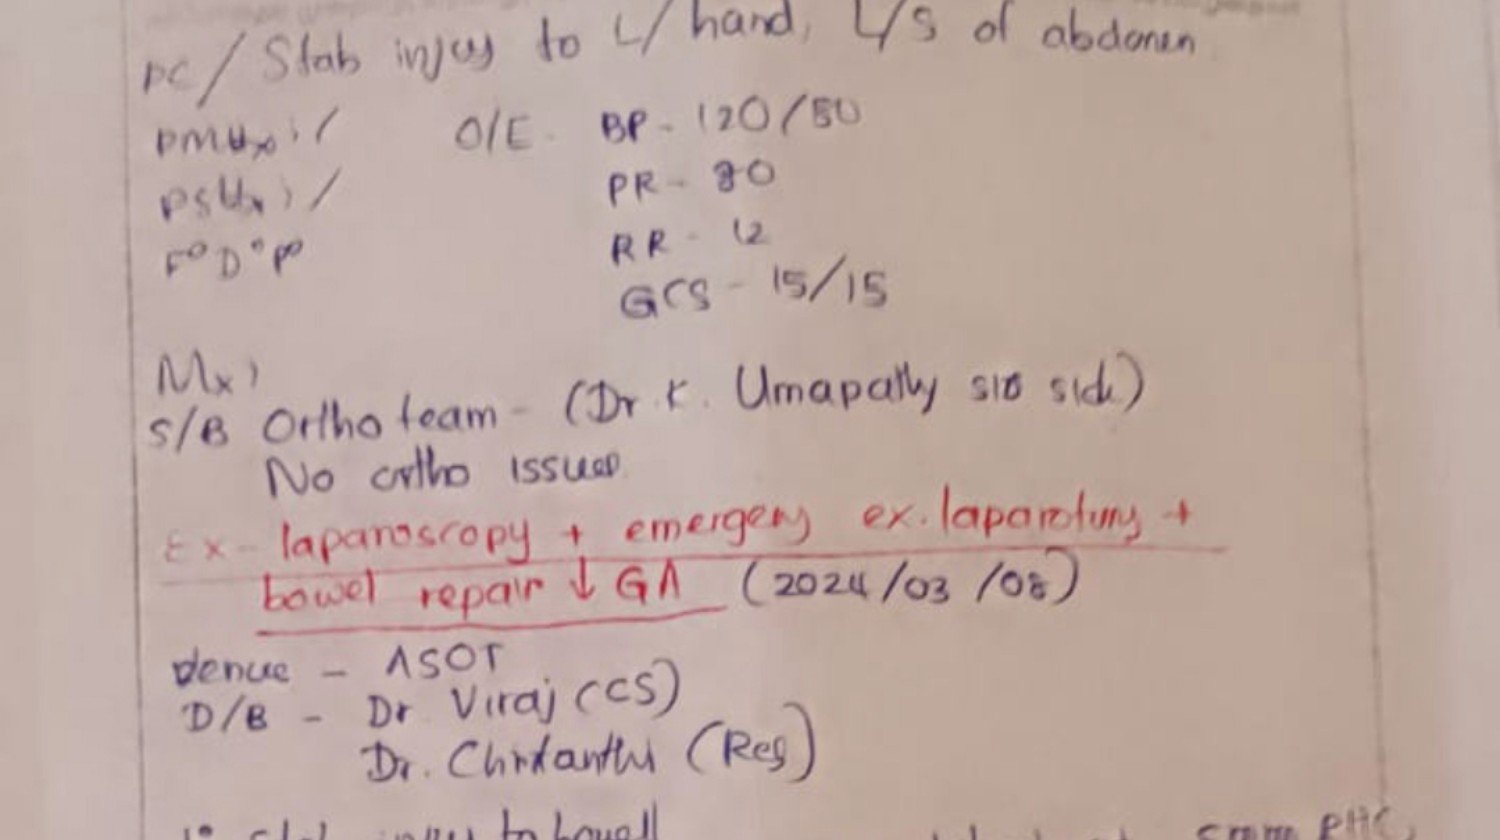 PC/ Stab injury to L/ hand, L/S of abdomen
PMHx : /
O/E - BP - 120/80
PSHx : /
PR - 80
F° D° P°
RR - 12
GCS - 15/15
Mx :
S/B Ortho team - (Dr. K. Umapathy
No ortho issues
Ex - laparoscopy + emergency ex. laparotomy +
bowel repair ↓ GA (2024/03/08)
Venue - ASOT
D/B - Dr Viraj (CS)
Dr. (Reg)
stab injury to bowel